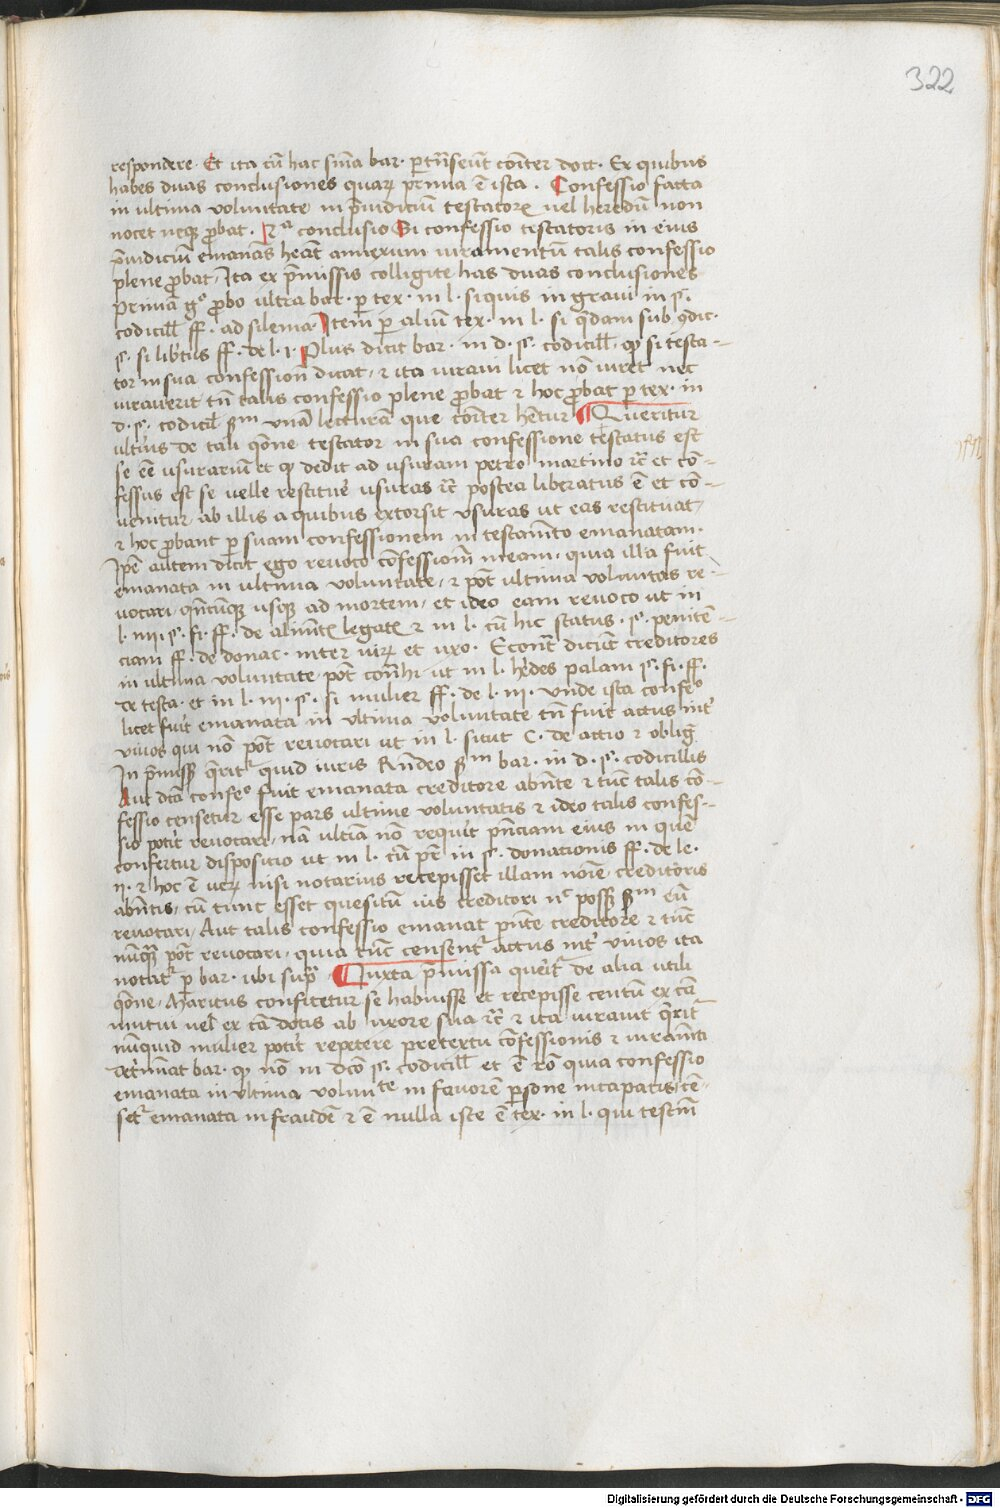 322
respondere. Et ita cū hac sm̄a bar. p̄trāseūt cōiter doct. Ex quibus
habes duas conclusiones quarꝫ prima ē ista. Confessio facta
in ultima voluntate in p̄iudiciū testatorꝫ uel heredū non
nocet neqꝫ ꝓbat. 2ª conclusio Si confessio testatoris in eius
p̄iudiciū emanās heāt annexum iuramentū talis confessio
plene ꝓbat, Ita ex p̄missis colligite has duas conclusiones
Primā gº ꝓbo ultra bar. ꝑ tex. in l. siquis in graui in §.
codicill̄ ff. ad silenia. Item ꝑ aliū tex. in l. si q̄dam sub ꝯdic.
§. si lib̓tus ff. de l. 1. Plus dicit bar. in d. §. codicill̄. qꝫ si testa-
tor in sua confessiōn dicat, ⁊ ita iuraui licet nō iuret nec
iurauerit tn̄ talis confessio plene ꝓbat ⁊ hoc ꝓbat ꝑ tex. in
d. §. codicil̄ ẜm unā lecturā que cōiter hētur Queritur
ulti̓us de tali q̄one testator in sua confessione testatus est
se ēē usurariū et qꝫ dedit ad usuram petro martino ⁊c̄ et cō-
fessus est se uelle restitue̓ usuras ⁊c̄ postea liberatus ē et cō-
uenitur ab illis a quibus extorsit usuras ut eas restituat,
⁊ hoc ꝓbant ꝑ suam confessionem in testam̄to emanatam.
Ip̄e autem dicit ego reuoco cōfessionē meam. quia illa fuit
emanata in ultima voluntate, ⁊ pōt ultima voluntas re-
uocari, qn̄cūqꝫ usqꝫ ad mortem, et ideo eam reuoco ut in
l. iiii. §. fi. ff. de alim̄tꝫ legatꝫ ⁊ in l. cū hic status. §. penitē-
ciam ff. de donac. inter uirꝫ et uxo. Ecōnt̄ dicūt creditores
in ultima voluntate pōt cōn̄hi ut in l. he̓des palam §. fi. ff.
de testa. et in l. iii. §. si mulier ff. de l. iii. Unde ista confeº
licet fuit emanata in ultima voluntate tn̄ fuit actus int̓
viuos qui nō pōt reuocari ut in l. sicut C. de actio ⁊ obliḡ
In p̄missꝫ q̄rit̓ quid iuris Rn̄deo ẜm bar. in d. §. codicillis
Aut dc̄a confeº fuit emanata creditore abn̄te ⁊ tūc talis cō-
fessio censetur esse pars ultime voluntatis ⁊ ideo talis confes-
sio potit̓ reuocari, nā ultīa nō requi̓t pn̄ciam eius in quē
confertur dispositio ut in l. cū pr̄ in §. donationis ff. de le.
ii. ⁊ hoc ē uerꝫ nisi notarius recepisset illam noīe creditoris
abn̄tis, cū tunc esset quesitū ius creditori nᶜ possꝫ ẜm eū
reuocari, Aut talis confessio emanat pn̄te creditore ⁊ tūc
nūqꝫ pōt reuocari, quia tūc censent̓ actus int̓ viuos ita
notat̓ ꝑ bar. ubi sup̄. Iuxta p̄missa querit̓ de alia utili
q̄one, Maritus confitetur se habuisse et recepisse centū ex cā
mutui uel̄ ex cā dotis ab uxore sua ⁊c̄ ⁊ ita iurauit q̄rit̓
nūnquid mulier potit̓ repetere pretextu cōfessionis ⁊ iuram̄ti
det̓minat bar. qꝫ nō in dc̄o §. codicill̄ et ē rō quia confessio
emanata in ultima volunᵗᵉ in fauorē ꝑsone incapacis, cē-
set̓ emanata in fraudē ⁊ ē nulla iste ē tex. in l. qui testm̄
Digitalisierung gefördert durch die Deutsche Forschungsgemeinschaft - DFG